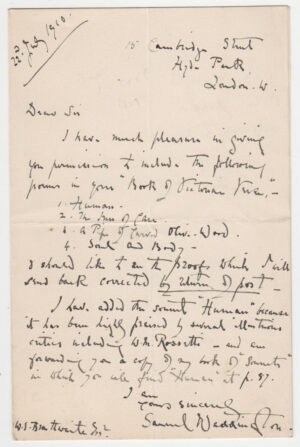 22nd July 1910.
15 Cambridge Street
Hyde Park
London. W.
Dear Sir
I have much pleasure in giving
you permission to include the following
poems in your "Book of Victorian Verse," -
1. Human.
2. The Inn of Care.
3. A Pipe of Carved Olive-Wood.
4. Soul and Body -
I should like to see the proofs which I will
send back corrected by return of post -
I have added the sonnet "Human" because
it has been highly praised by several illustrious
critics including W. M. Rossetti - and am
forwarding you a copy of my book of "Sonnets"
in which you will find "Human" at p. 97.
I am
Yours sincerely
Samuel Waddington.
W. S. Braithwaite Esqr